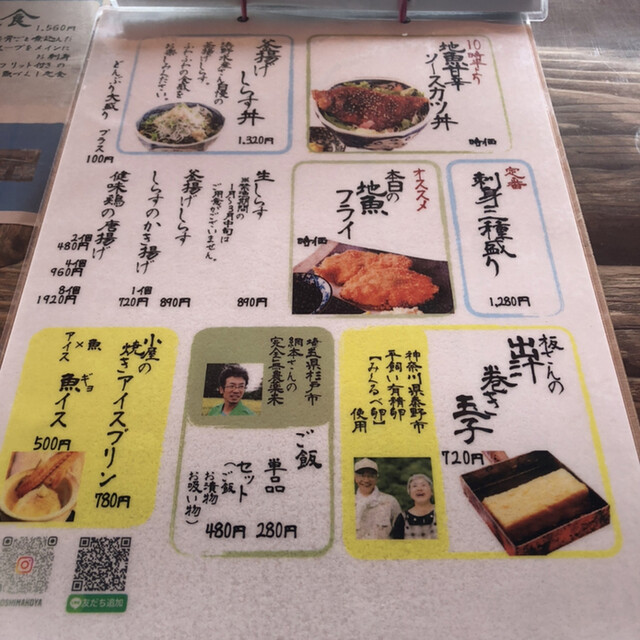 1,560円
地魚甘辛
ソースカツ丼
時価
釜揚げ
しらす丼
1,320円
どんぶり大盛り プラス
100円
定番
刺身三種盛り
1,280円
オススメ
本日の
地魚
フライ
時価
生しらす
※禁漁期間の
1月〜3月中旬は
ご用意がございません。
890円
釜揚げしらす
890円
しらすのかき揚げ
1個
720円
健味鶏の唐揚げ
2個
480円
4個
960円
8個
1920円
板さんの
出汁
巻き
玉子
720円
神奈川県秦野市
平飼い有精卵
【みくるべ卵】
使用
埼玉県杉戸市
網本さんの
完全無農薬米
ご飯
単品
280円
セット
(ご飯
お漬物
お吸い物)
480円
小屋の
焼きアイスプリン
780円
魚 ギョ
×
アイス
魚イス
500円
友だち追加